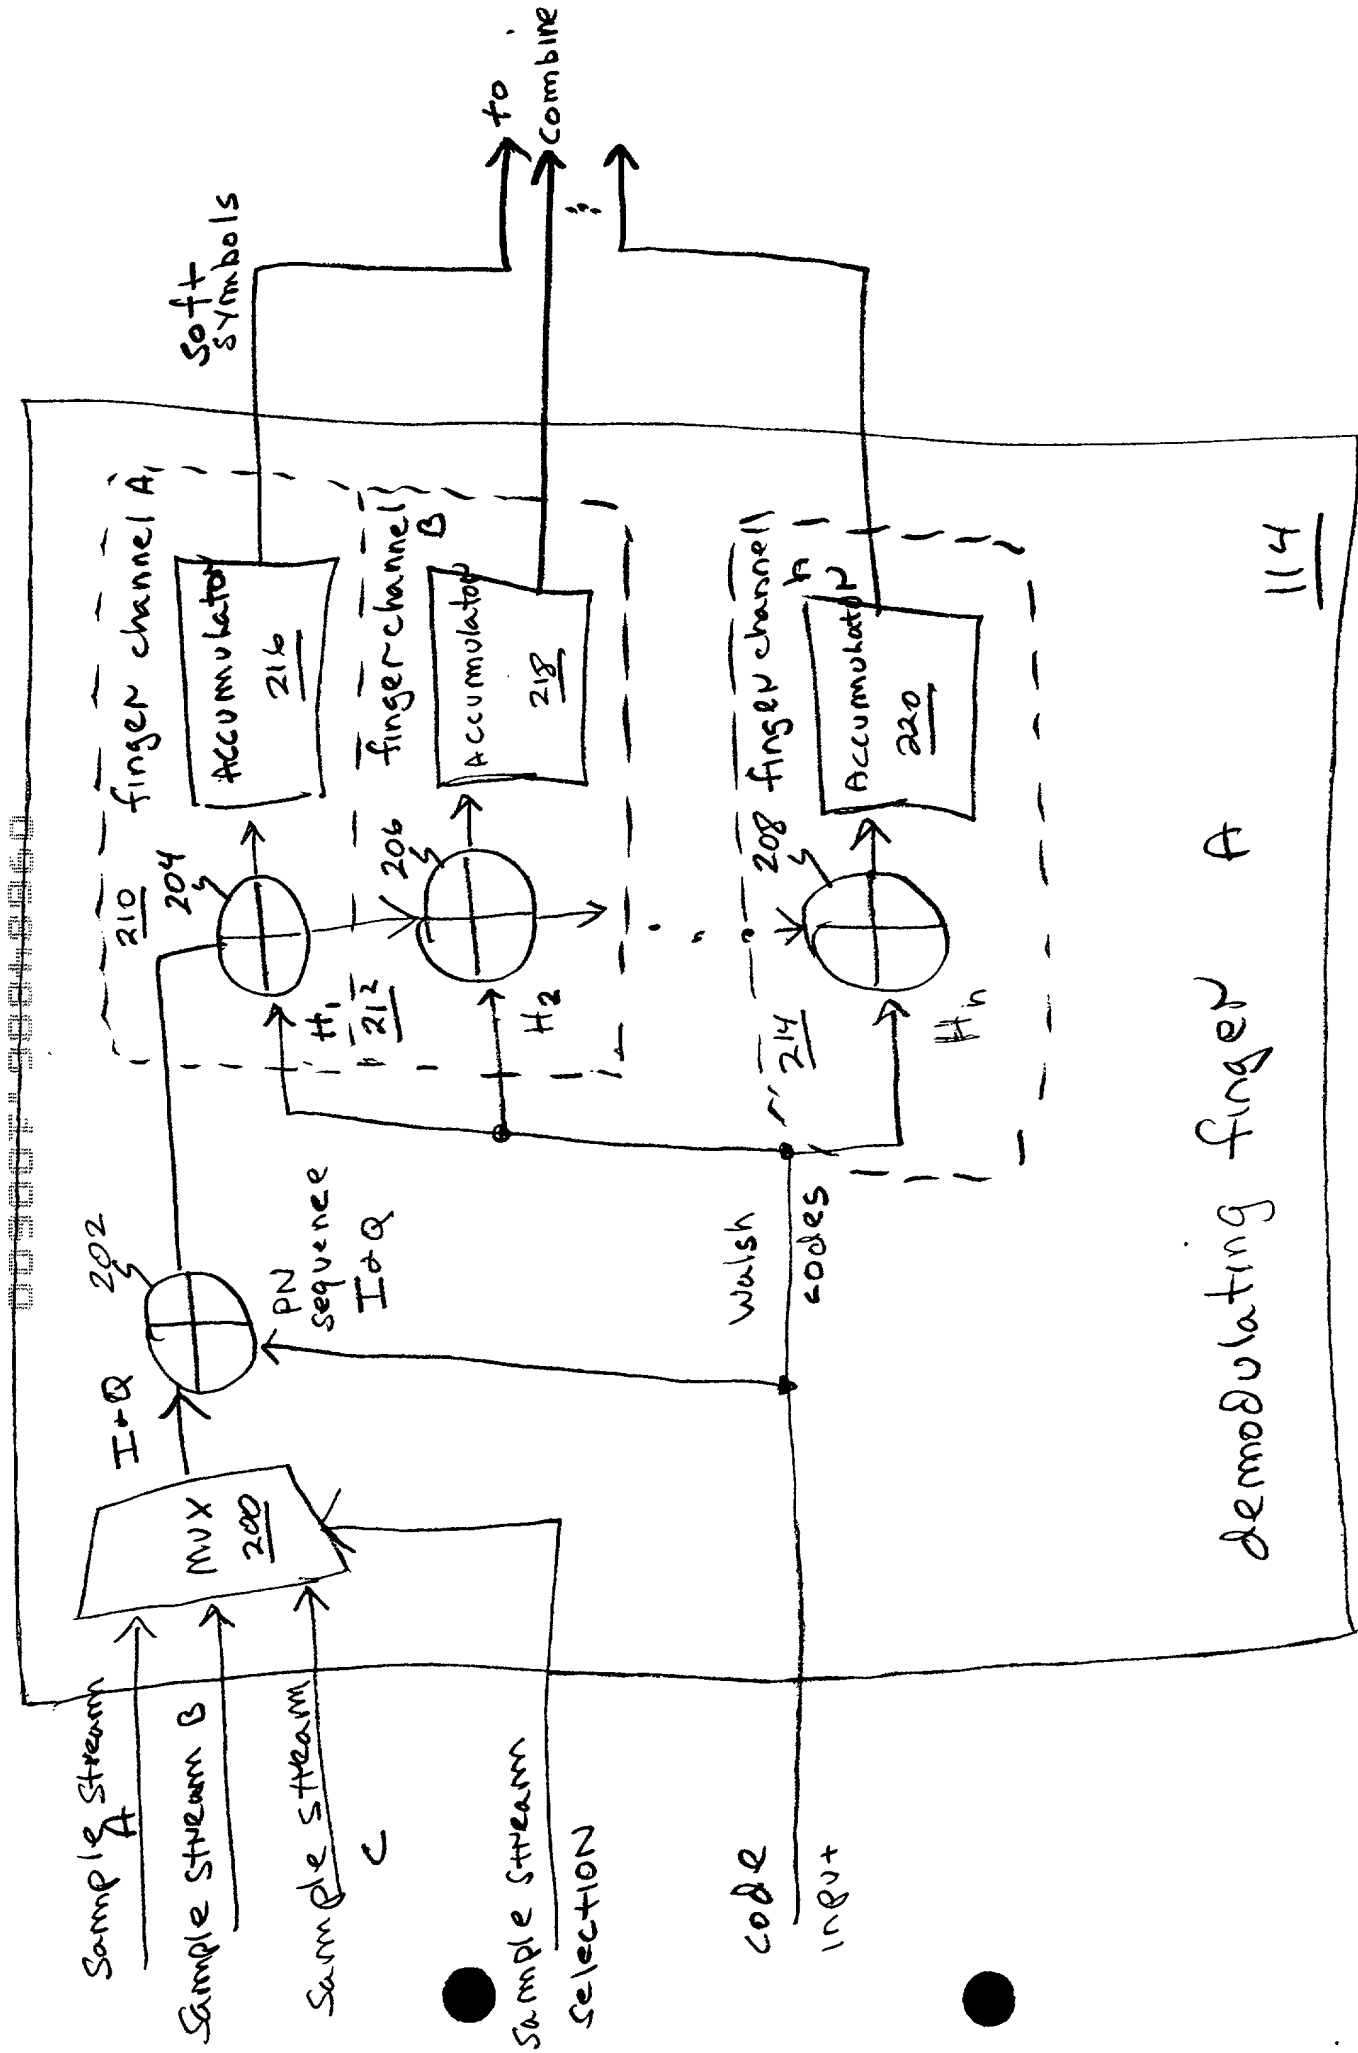 Sample Stream
A
Sample Stream B
Sample Stream
C
Sample Stream
Selection
code
input
MUX
200
I & Q
202
PN
sequence
I & Q
Walsh
codes
210
finger channel A,
204
H1
Accumulator
216
212
finger channel
B
206
H2
Accumulator
218
214
208
finger channel
n
Hn
Accumulator
220
Soft
Symbols
to
combine
demodulating finger A
114